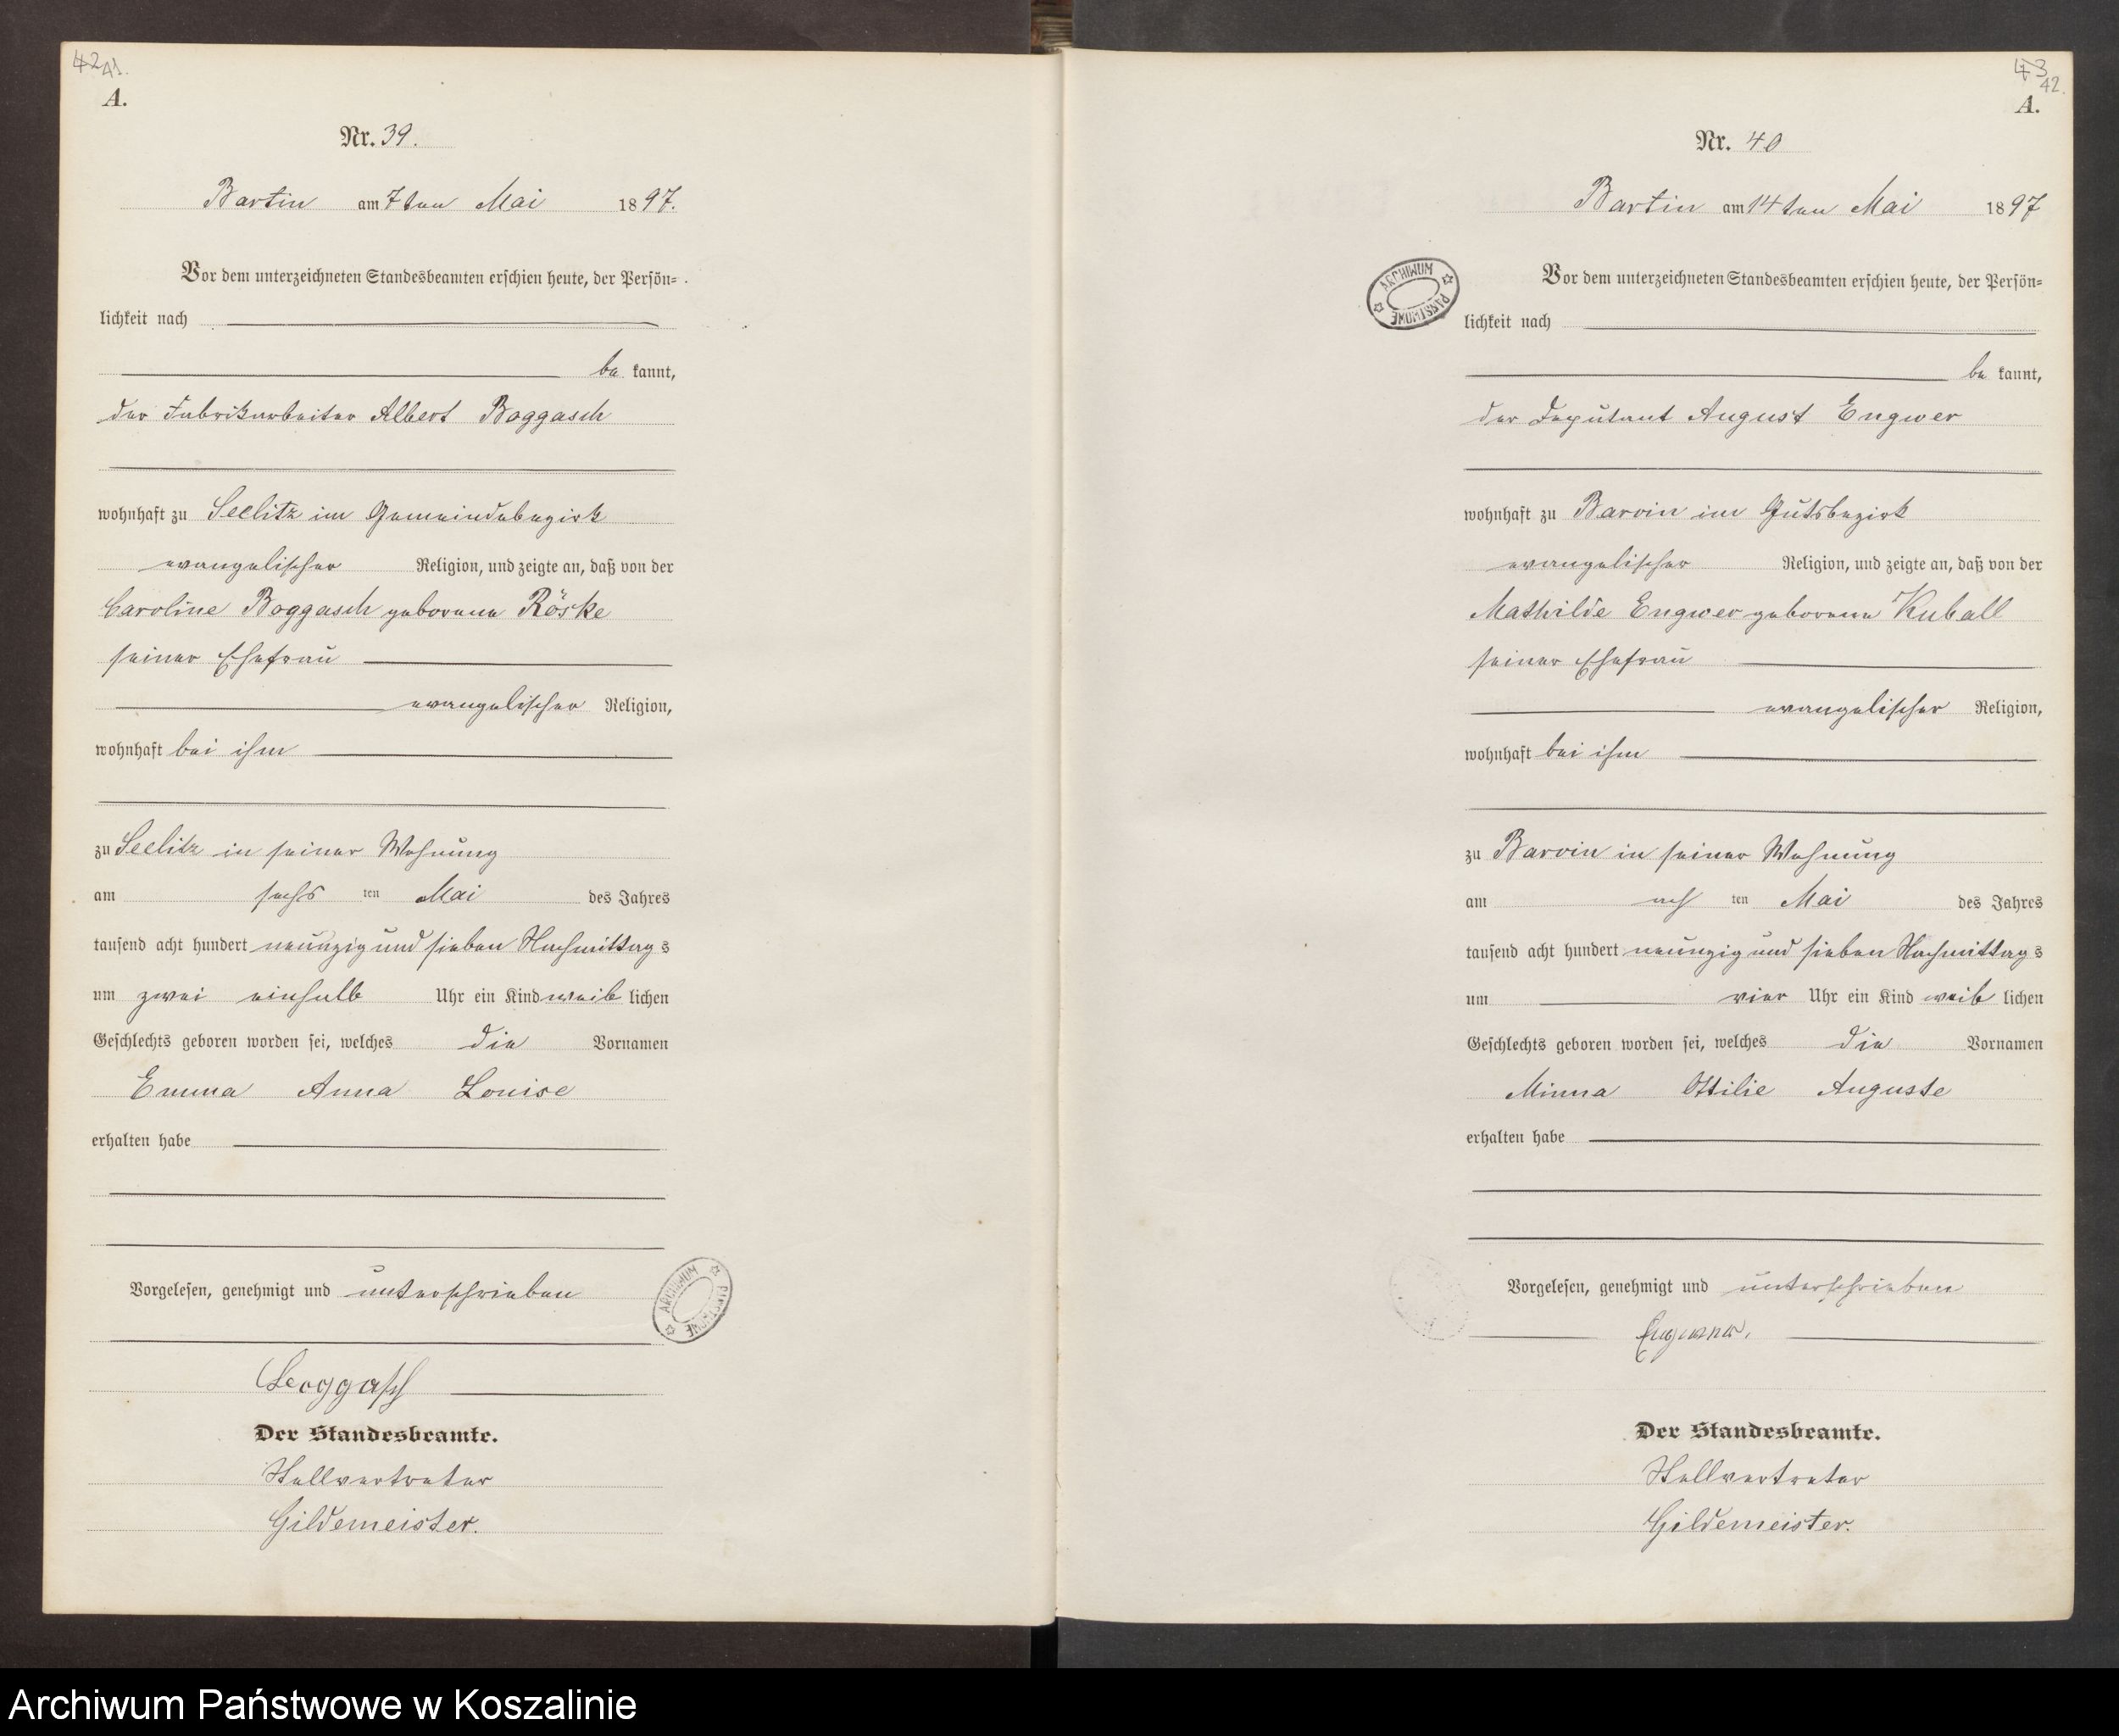 42 41.
A.
Nr. 39.
Bartin am 7ten Mai 1897.
Vor dem unterzeichneten Standesbeamten erschien heute, der Persön=
lichkeit nach
bekannt,
der Fabrikarbeiter Albert Boggasch
wohnhaft zu Seelitz im Gemeindebezirk
evangelischer Religion, und zeigte an, daß von der
Caroline Boggasch geborene Röske
seiner Ehefrau
evangelischer Religion,
wohnhaft bei ihm
zu Seelitz in seiner Wohnung
am sechsten Mai des Jahres
tausend acht hundert neunzig und sieben Nachmittags
um zwei einhalb Uhr ein Kind weiblichen
Geschlechts geboren worden sei, welches die Vornamen
Emma Anna Louise
erhalten habe
Vorgelesen, genehmigt und unterschrieben
Boggasch
Der Standesbeamte.
Stellvertreter
Gildemeister.
ARCHIWUM PAŃSTWOWE
43 42.
A.
Nr. 40
Bartin am 14ten Mai 1897
Vor dem unterzeichneten Standesbeamten erschien heute, der Persön=
lichkeit nach
bekannt,
der Deputant August Engwer
wohnhaft zu Barvin im Gutsbezirk
evangelischer Religion, und zeigte an, daß von der
Mathilde Engwer geborene Kuball
seiner Ehefrau
evangelischer Religion,
wohnhaft bei ihm
zu Barvin in seiner Wohnung
am achten Mai des Jahres
tausend acht hundert neunzig und sieben Nachmittags
um vier Uhr ein Kind weiblichen
Geschlechts geboren worden sei, welches die Vornamen
Minna Ottilie Auguste
erhalten habe
Vorgelesen, genehmigt und unterschrieben
Der Standesbeamte.
Stellvertreter
Gildemeister.
ARCHIWUM PAŃSTWOWE
Archiwum Państwowe w Koszalinie